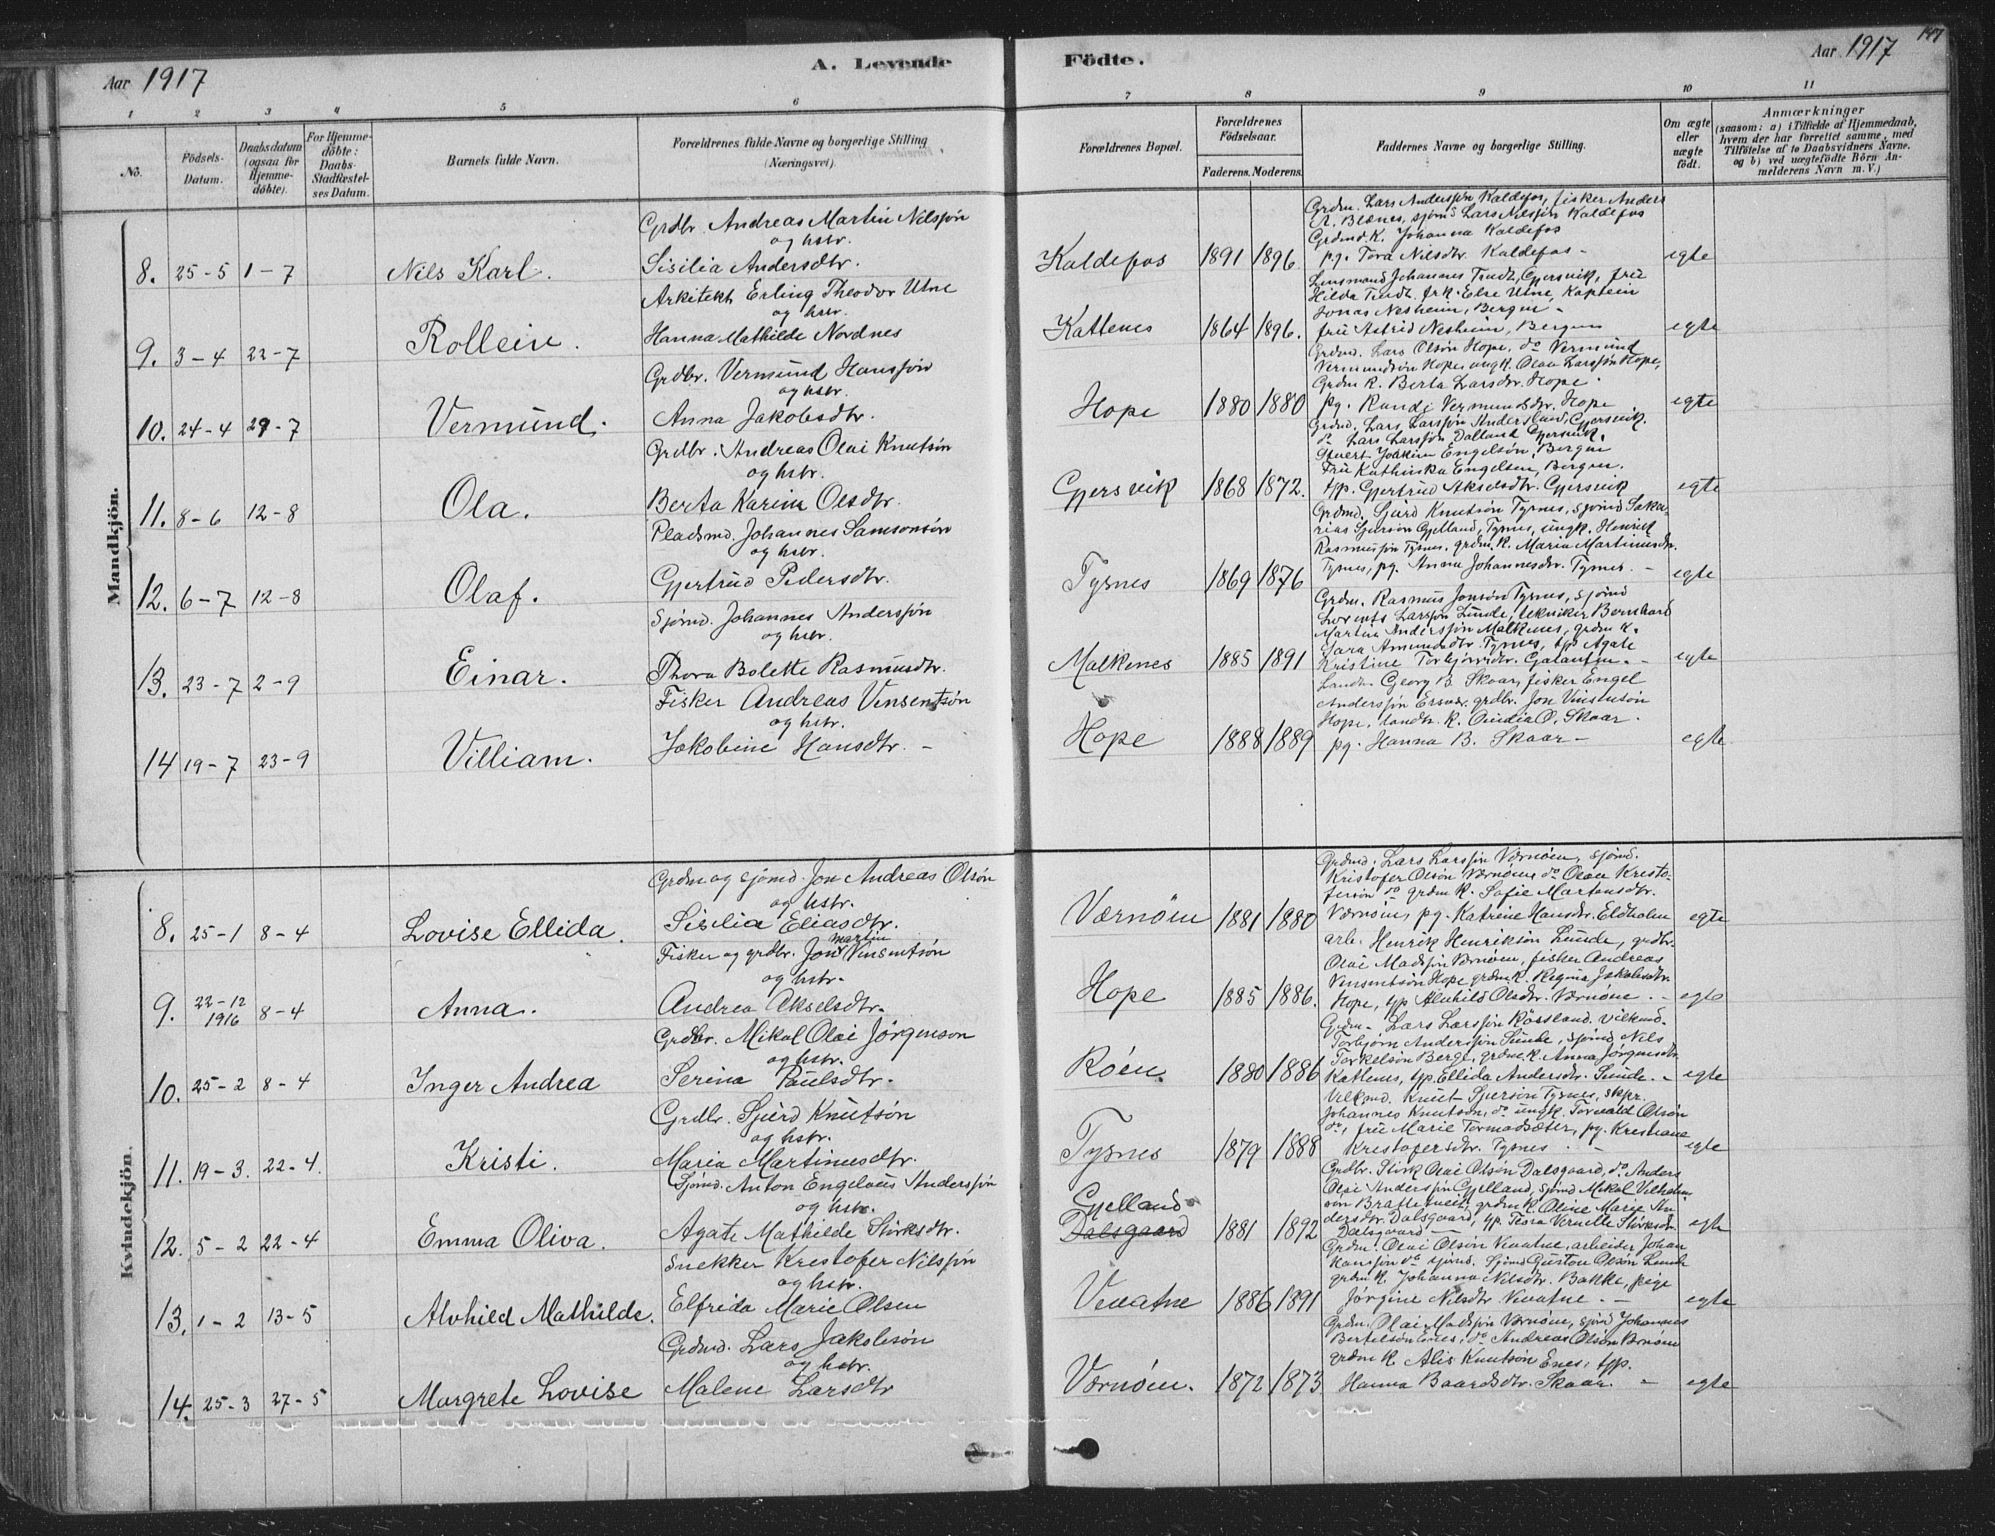 Aar 1917
A. Levende Födte.
Aar 1917
147
1 2 3 4 5 6 7 8 9 10 11
No.
Födsels-
Datum.
Daabsdatum
(ogsaa for
Hjemme-
döbte).
For Hjemme-
döbte:
Daabs-
Stadfæstel-
ses Datum.
Barnets fulde Navn.
Forældrenes fulde Navne og borgerlige Stilling
(Næringsvei).
Forældrenes Bopæl.
Forældrenes
Födselsaar.
Faderens. Moderens.
Faddernes Navne og borgerlige Stilling.
Om ægte
eller
uægte
födt.
Anmærkninger
(saasom: a) i Tilfælde af Hjemmedaab,
hvem der har forrettet samme, med
Tilföielse af to Daabsvidners Navne.
og b) ved uægtefödte Börn An-
melderens Navn m. V.)
Mandkjön.
8. 25-5 1-7 Nils Karl.
Grdbr. Andreas Martin Nilssøn
og hstr.
Sisilia Andersdtr.
Kaldefos 1891 1896.
Grdm. Lars Anderssøn Kaldefos, fisker Anders
A. Blænes, sjømd Lars Nilssøn Kaldefos
Grdmd. K. Johanna Kaldefos
pg. Tora Nilsdtr. Kaldefos -
egte
9. 3-4 22-7 Rollein.
Arkitekt Erling Theodor Utne
og hstr.
Hanna Mathilde Nordnes
Kattenes 1864 1896.
Lensmand Johannes Tvedt, Gjersvik, frue
Hilda Tvedt. frk. Else Utne, Kaptein
Jonas Nesheim, Bergen -
frue Astrid Nesheim, Bergen
egte
10. 24-4 29-7 Vermund.
Grdbr. Vermund Hanssøn
og hstr.
Anna Jakobsdtr.
Hope 1880 1880
Grdmd. Lars Olsøn Hope, do Vermund
Vermundsøn Hope, ungk. Olai Larssøn Hope,
Grdm K. Berta Larsdtr. Hope.
pg. Randi Vermundsdtr. Hope
egte
11. 8-6 12-8 Ola.
Grdbr. Andreas Olai Knutsøn
og hstr.
Berta Karine Olsdtr.
Gjersvik 1868 1872.
Grdmd. Lars Larssøn Andersland, Gjersvik.
do Lars Larssøn Dalland Gjersvik.
Joakim Engelsøn, Bergen
Frue Kathinka Engelsen, Bergen.
tjp. Gjertrud Akselsdtr. Gjersvik
egte
12. 6-7 12-8 Olaf.
Pladsmd. Johannes Samsonsøn
og hstr.
Gjertrud Pedersdtr.
Tysnes 1869 1876
Grdmd. Sjurd Knutsøn Tysnes, sjømd Saka-
rias Sjursøn Gjelland, Tysnes, ungk. Henrik
Rasmussøn Tysnes, grdm. K. Maria Martinusdtr.
Tysnes, pg. Anna Johannesdtr. Tysnes. -
egte
13. 23-7 2-9 Einar.
Sjømd. Johannes Anderssøn
og hstr.
Thora Bolette Rasmusdtr.
Malkenes 1885 1891
Grdm. Rasmus Jonsøn Tysnes, sjømd
Lorents Larssøn Lunde, tekniker Bernhard
Martin Anderssøn Malkenes, grdm K.
Sara Amundsdtr. Tysnes, tjp Agate
Kristine Torbjørnsdtr.
egte
14 19-7 23-9 Villiam.
Fisker Andreas Vinsentsøn
og hstr.
Jakobine Hansdtr. -
Hope 1888 1889
Landh. Georg B. Skaar, fisker Engel
Anderssøn grdbr. Jon Vinsentsøn
Hope, landh. K. O. Skaar.
pg. Hanna B. Skaar -
egte
Kvindekjön.
8. 25-1 8-4 Lovise Ellida.
Grdm og sjømd. Jon Andreas Olsøn
og hstr.
Sisilia Eliasdtr.
Værnøen 1881 1880
Grdmd. Lars Larssøn Værnøen, sjømd.
Kristofer Olsøn Værnøen, do Olai Kristo-
fersøn do grdm K. Sofie Martensdtr.
Værnøen, pg. Katrine Hansdtr. Eldholm
egte
9. 22-12 1916 8-4 Anna.
Fisker og grdbr. Jon Martin Vinsentsøn
og hstr.
Andrea Akselsdtr.
Hope 1885 1886.
arb. Henrik Henriksøn Lunde, grdbr.
Olai Madssøn Værnøen, fisker Andreas
Vinsentsøn Hope grdm K. Regina Jakobsdtr.
Hope, tjp Alvhild Olsdtr. Værnøen. -
egte
10. 25-2 8-4 Inger Andrea
Grdbr. Mikal Olai Jørgenson
og hstr.
Serina Paulsdtr.
Røen. 1880 1886
Grdm. Lars Larssøn Røssland. vilkmd.
Torbjørn Anderssøn Lunde, sjømd Nils
Torkelsøn Berge, grdm K. Anna Jørgensdtr.
Kattenes, tjp. Ellida Andersdtr. Lunde. -
egte
11. 19-3. 22-4. Kristi.
Grdbr. Sjurd Knutsøn
og hstr.
Maria Martinusdtr.
Tysnes 1879 1888
Vilkmd. Knut Sjursøn Tysnes, skpr.
Johannes Knutsøn, do ungk. Torvald Olsøn
do, frue Marie Tormodsæter, pg. Kristiane
Kristofersdtr. Tysnes
egte
12. 5-2 22-4 Emma Oliva.
Sjømd. Anton Engelous Anderssøn
og hstr.
Agate Mathilde Størksdtr.
Gjelland
Dalsgaard 1881 1892
Grdbr. Størk Olai Olsøn Dalsgaard, do Anders
Olai Anderssøn Gjelland, sjømd Mikal Vilhelm-
søn grdm K. Oline Marie An-
dersdtr. Dalsgaard, tjp. Størksdtr.
Dalsgaard
egte
13. 1-2 13-5 Alvhild Mathilde.
Snekker Kristofer Nilssøn
og hstr.
Elfrida Marie Olsen
Vevatne 1886 1891
Grdm. Olai Olsøn Vevatne, arbeider Johan
Hanssøn do sjømd. Sjømd Gustav Olsøn Lunde
grdm K. Johanna Nilsdtr. Bakke, pige
Jørgine Nilsdtr. Vevatne. -
egte
14. 25-3 27-5 Margrete Lovise
Grdmd. Lars Jakobsøn
og hstr.
Malene Larsdtr
Værnøen. 1872 1873
Grdm. Olai Madssøn Værnøen, sjømd Johannes
Bertelsøn Enes, do Andreas Olsøn Værnøen
grdm K. Alis Knutsøn Enes, tjp.
Hanna Baardsdtr. Skaar. -
egte